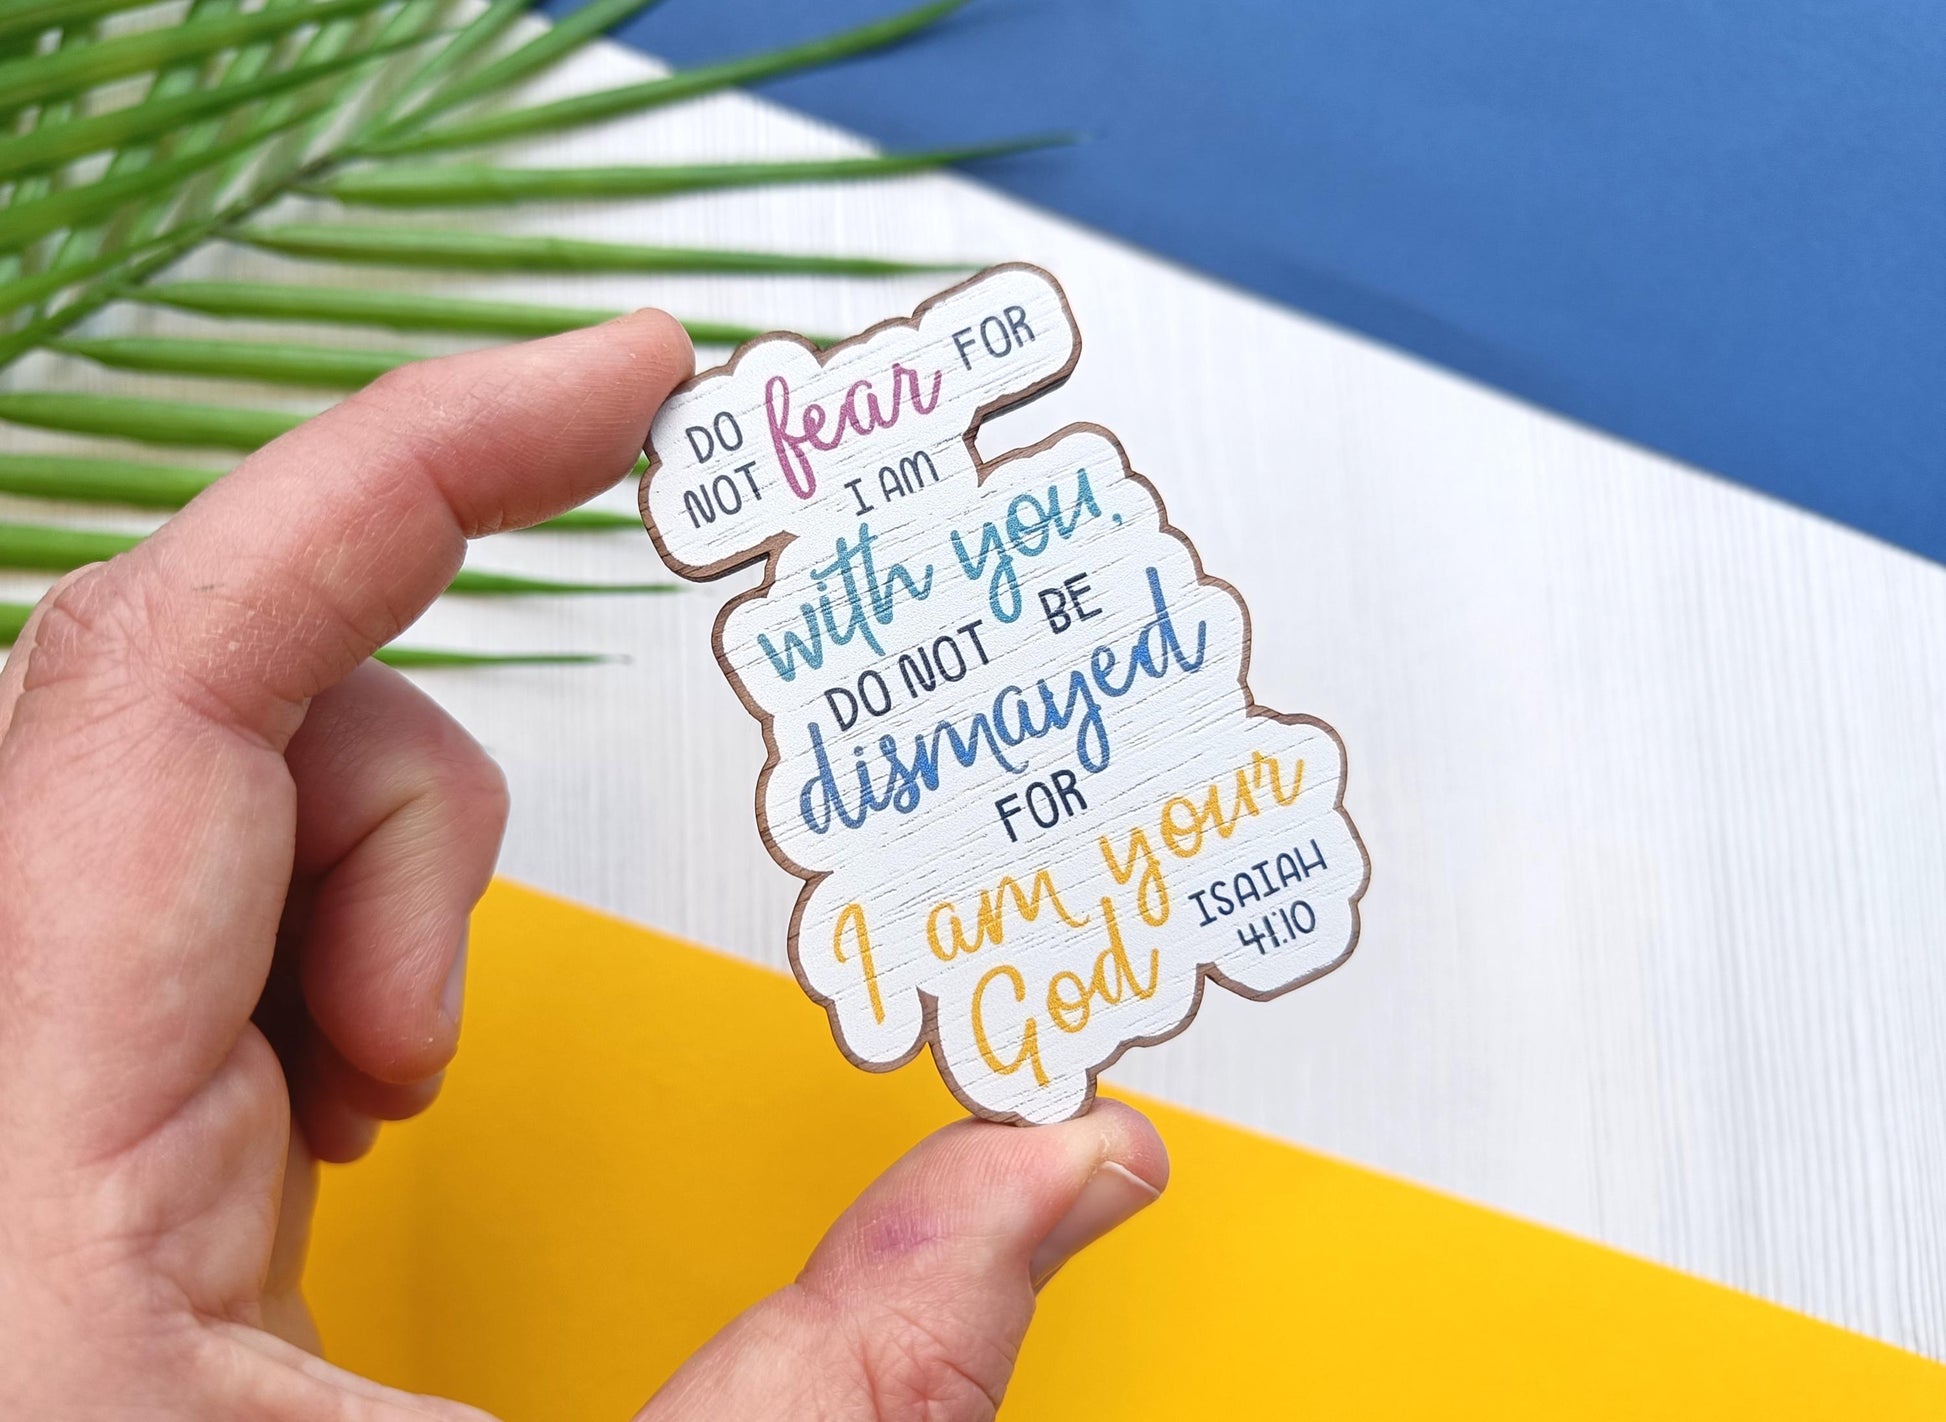 DO fear FOR
NOT I AM
with you,
DO NOT BE
dismayed
FOR
I am your
God ISAIAH
41:10